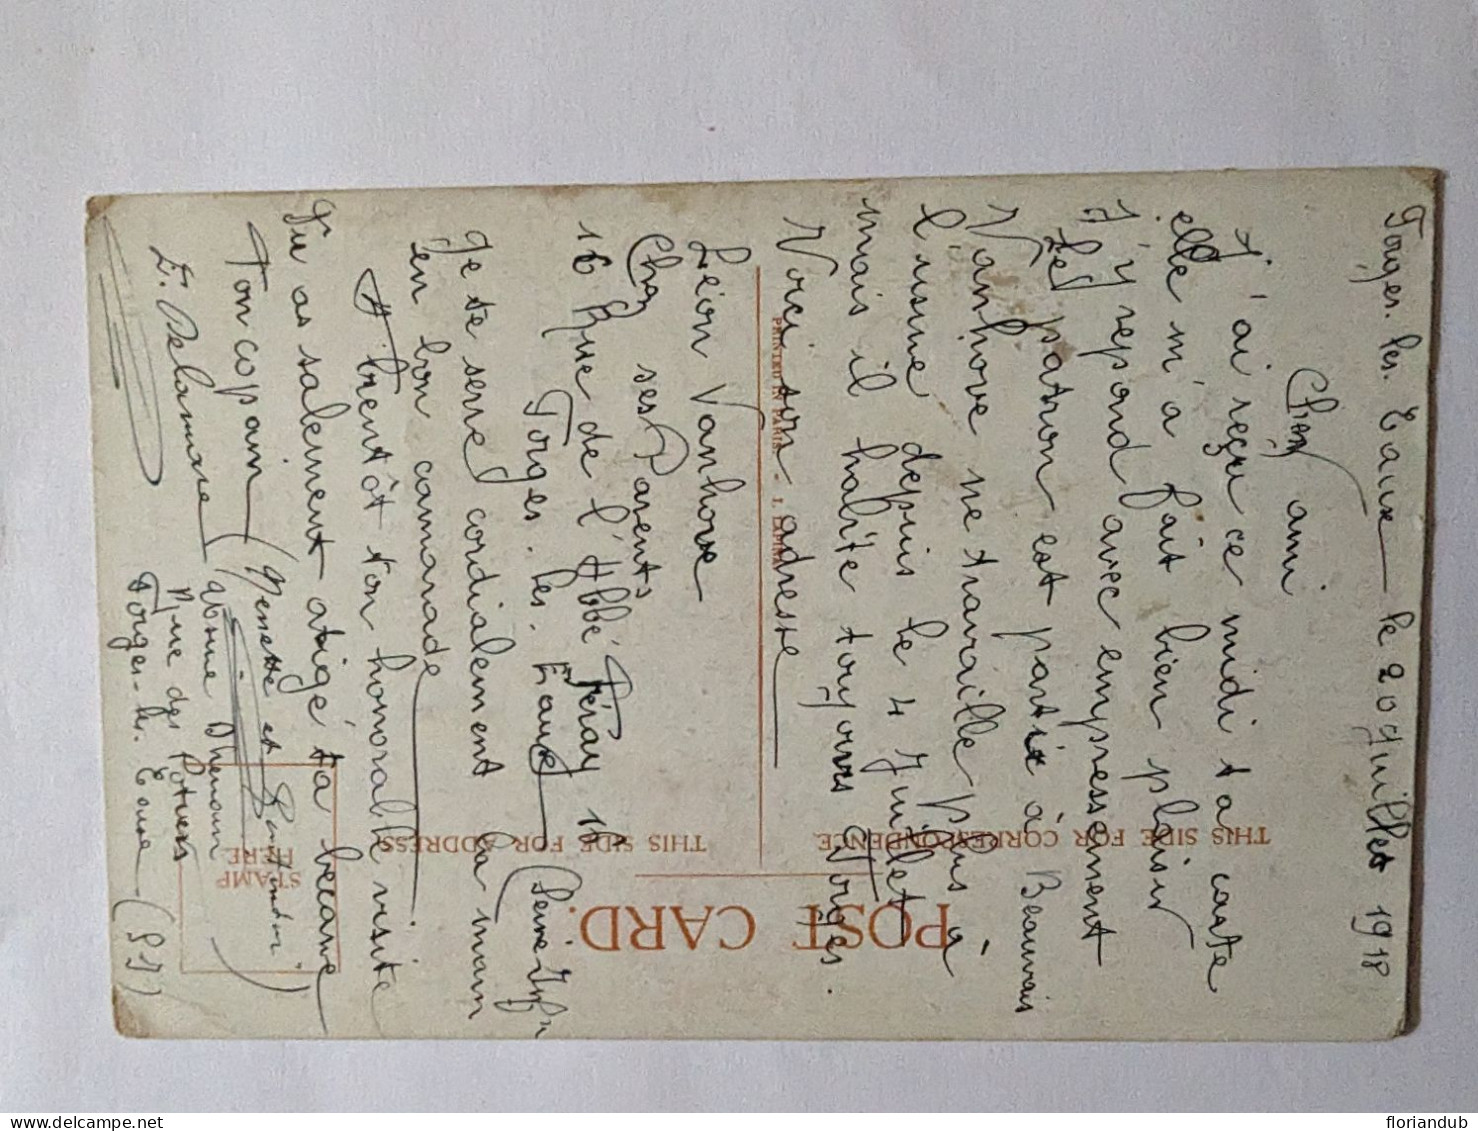 Forges. les. Eaux le 20 Juillet 1918
Cher ami
J'ai reçu ce midi ta carte
elle m'a fait bien plaisir
J'y repond avec empressement
Le patron est partie à Beauvais
Vanhove ne travaille plus à
l'usine depuis le 4 Juillet
mais il habite toujours Forges.
Voici son adresse
Léon Vanhove
Chez ses Parents
16 Rue de l'Abbé Féray 16
Forges. les. Eaux (Seine-Infre
Je te serre cordialement la main
en bon camarade
A bientôt ton honorable visite
Tu as salement arigé ta becane
Ton copain (
et
E. Delamare
Usine
Rue des Potiers
Forges-les. Eaux (S I)
POST CARD.
THIS SIDE FOR CORRESPONDENCE.
THIS SIDE FOR ADDRESS.
STAMP
HERE
PRINTED IN PARIS -
floriandub